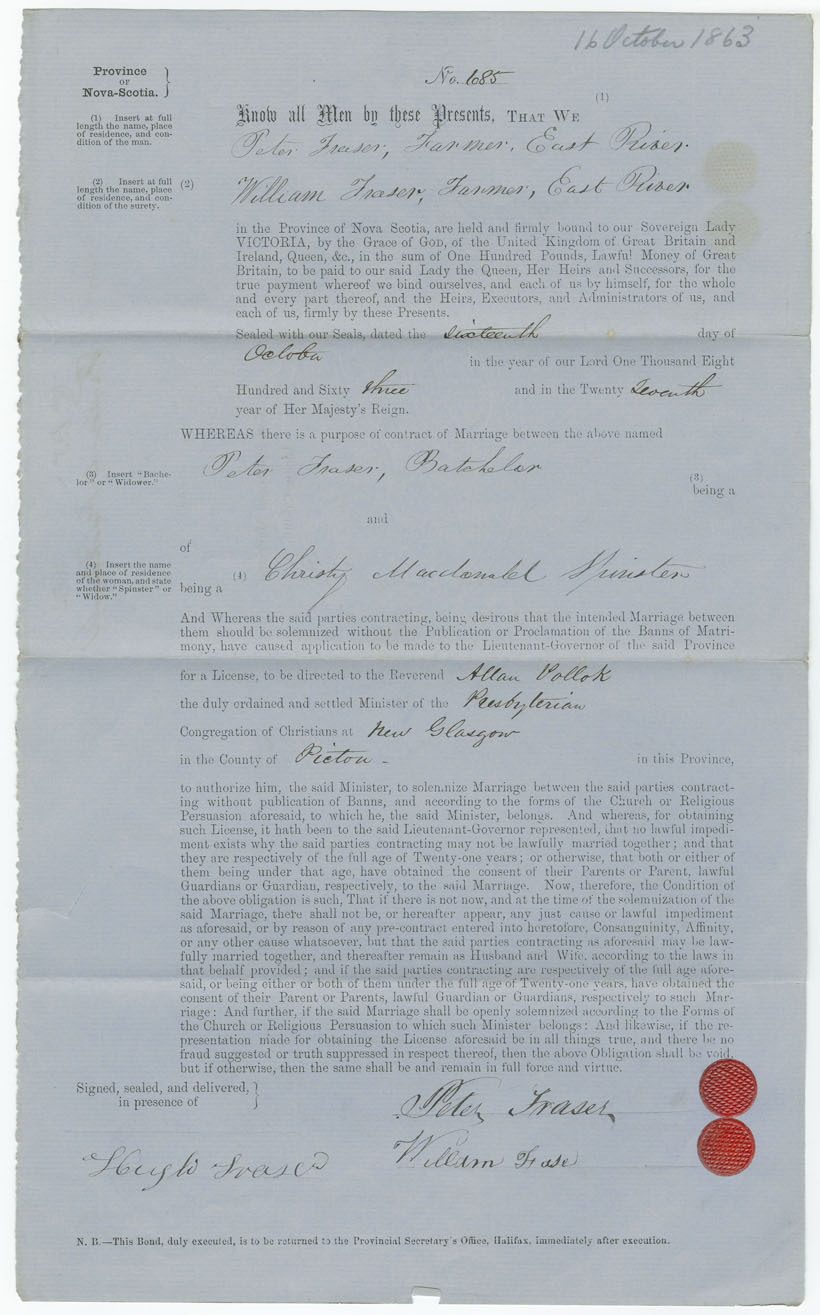 16 October 1863
Province
OF
Nova-Scotia.
No. 685
(1)
(1) Insert at full
length the name, place
of residence, and con-
dition of the man.
Know all Men by these Presents, THAT WE
Peter Fraser, Farmer, East River
(2) Insert at full
length the name, place
of residence, and con-
dition of the surety.
(2) William Fraser, Farmer, East River
in the Province of Nova Scotia, are held and firmly bound to our Sovereign Lady
VICTORIA, by the Grace of GOD, of the United Kingdom of Great Britain and
Ireland, Queen, &c., in the sum of One Hundred Pounds, Lawful Money of Great
Britain, to be paid to our said Lady the Queen, Her Heirs and Successors, for the
true payment whereof we bind ourselves, and each of us by himself, for the whole
and every part thereof, and the Heirs, Executors, and Administrators of us, and
each of us, firmly by these Presents.
Sealed with our Seals, dated the sixteenth day of
October in the year of our Lord One Thousand Eight
Hundred and Sixty three and in the Twenty Seventh
year of Her Majesty's Reign.
WHEREAS there is a purpose of contract of Marriage between the above named
(3) Insert "Bache-
lor" or "Widower."
Peter Fraser, Batchelor
(3)
being a
and
of
(4) Insert the name
and place of residence
of the woman, and state
whether "Spinster" or
"Widow."
being a (4) Christy Macdonald Spinster
And Whereas the said parties contracting, being desirous that the intended Marriage between
them should be solemnized without the Publication or Proclamation of the Banns of Matri-
mony, have caused application to be made to the Lieutenant-Governor of the said Province
for a License, to be directed to the Reverend Allan Pollok
the duly ordained and settled Minister of the Presbyterian
Congregation of Christians at New Glasgow
in the County of Pictou - in this Province,
to authorize him, the said Minister, to solemnize Marriage between the said parties contract-
ing without publication of Banns, and according to the forms of the Church or Religious
Persuasion aforesaid, to which he, the said Minister, belongs. And whereas, for obtaining
such License, it hath been to the said Lieutenant-Governor represented, that no lawful impedi-
ment exists why the said parties contracting may not be lawfully married together; and that
they are respectively of the full age of Twenty-one years; or otherwise, that both or either of
them being under that age, have obtained the consent of their Parents or Parent, lawful
Guardians or Guardian, respectively, to the said Marriage. Now, therefore, the Condition of
the above obligation is such, That if there is not now, and at the time of the solemnization of the
said Marriage, there shall not be, or hereafter appear, any just cause or lawful impediment
as aforesaid, or by reason of any pre-contract entered into heretofore, Consanguinity, Affinity,
or any other cause whatsoever, but that the said parties contracting as aforesaid may be law-
fully married together, and thereafter remain as Husband and Wife, according to the laws in
that behalf provided; and if the said parties contracting are respectively of the full age afore-
said, or being either or both of them under the full age of Twenty-one years, have obtained the
consent of their Parent or Parents, lawful Guardian or Guardians, respectively to such Mar-
riage: And further, if the said Marriage shall be openly solemnized according to the Forms of
the Church or Religious Persuasion to which such Minister belongs: And likewise, if the re-
presentation made for obtaining the License aforesaid be in all things true, and there be no
fraud suggested or truth suppressed in respect thereof, then the above Obligation shall be void,
but if otherwise, then the same shall be and remain in full force and virtue.
Signed, sealed, and delivered,
in presence of
Peter Fraser
Hugh Fraser
William Frase
N. B.—This Bond, duly executed, is to be returned to the Provincial Secretary's Office, Halifax, immediately after execution.